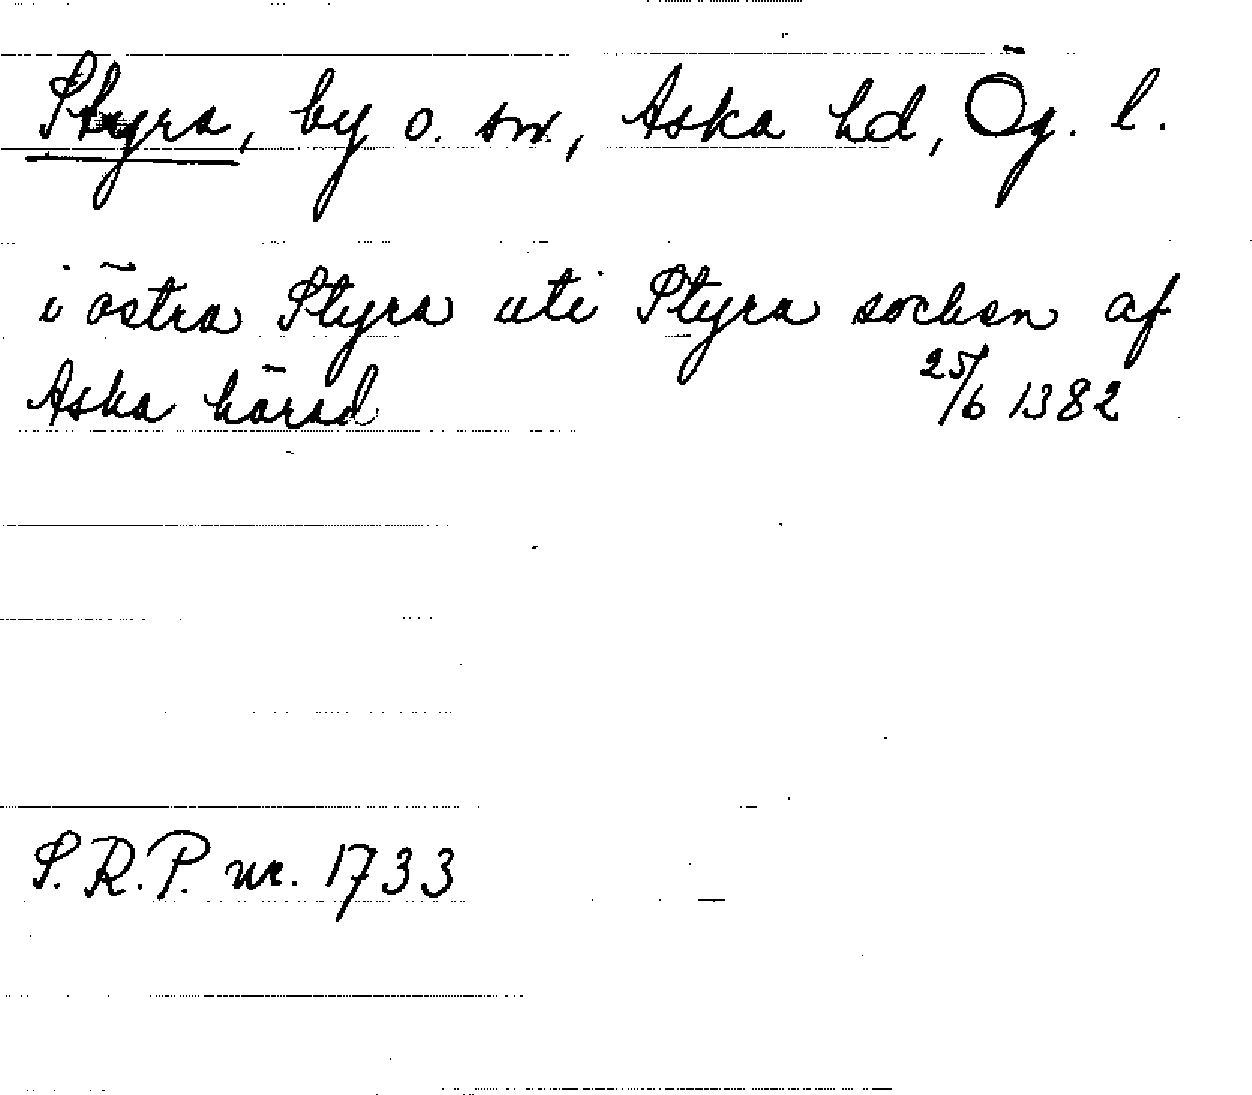 Styra, by o. sn, Aska hd, Ög. l.
i östra Styra uti Styra sochen af
Aska härad 25/6 1382
S.R.P. nr. 1733